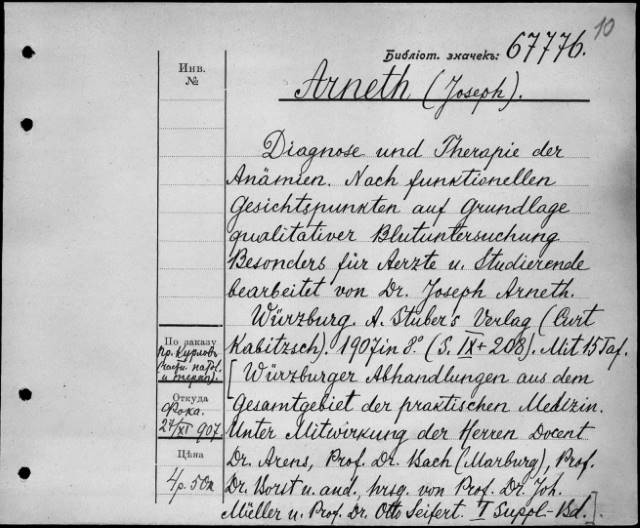 10
Библіот. значекъ: 67776.
Инв.
№
Arneth (Joseph).
Diagnose und Therapie der
Anämien. Nach funktionellen
Gesichtspunkten auf Grundlage
qualitativer Blutuntersuchung
Besonders für Aerzte u. Studierende
bearbeitet von Dr. Joseph Arneth.
Würzburg. A. Stuber's Verlag (Curt
Kabitzsch). 1907 in 8°. (S. IX + 208). Mit 15 Taf.
[Würzburger Abhandlungen aus dem
Gesamtgebiet der praktischen Medizin.
Unter Mitwirkung der Herren Docent
Dr. Arens, Prof. Dr. Bach (Marburg), Prof.
Dr. Borst u. and., hrsg. von Prof. Dr. Joh.
Müller u. Prof. Dr. Otto Seifert. I Suppl-Bd.].
По заказу
пр. Курлов
Откуда
Фока.
27/XI 907
Цѣна
4 р. 50 к